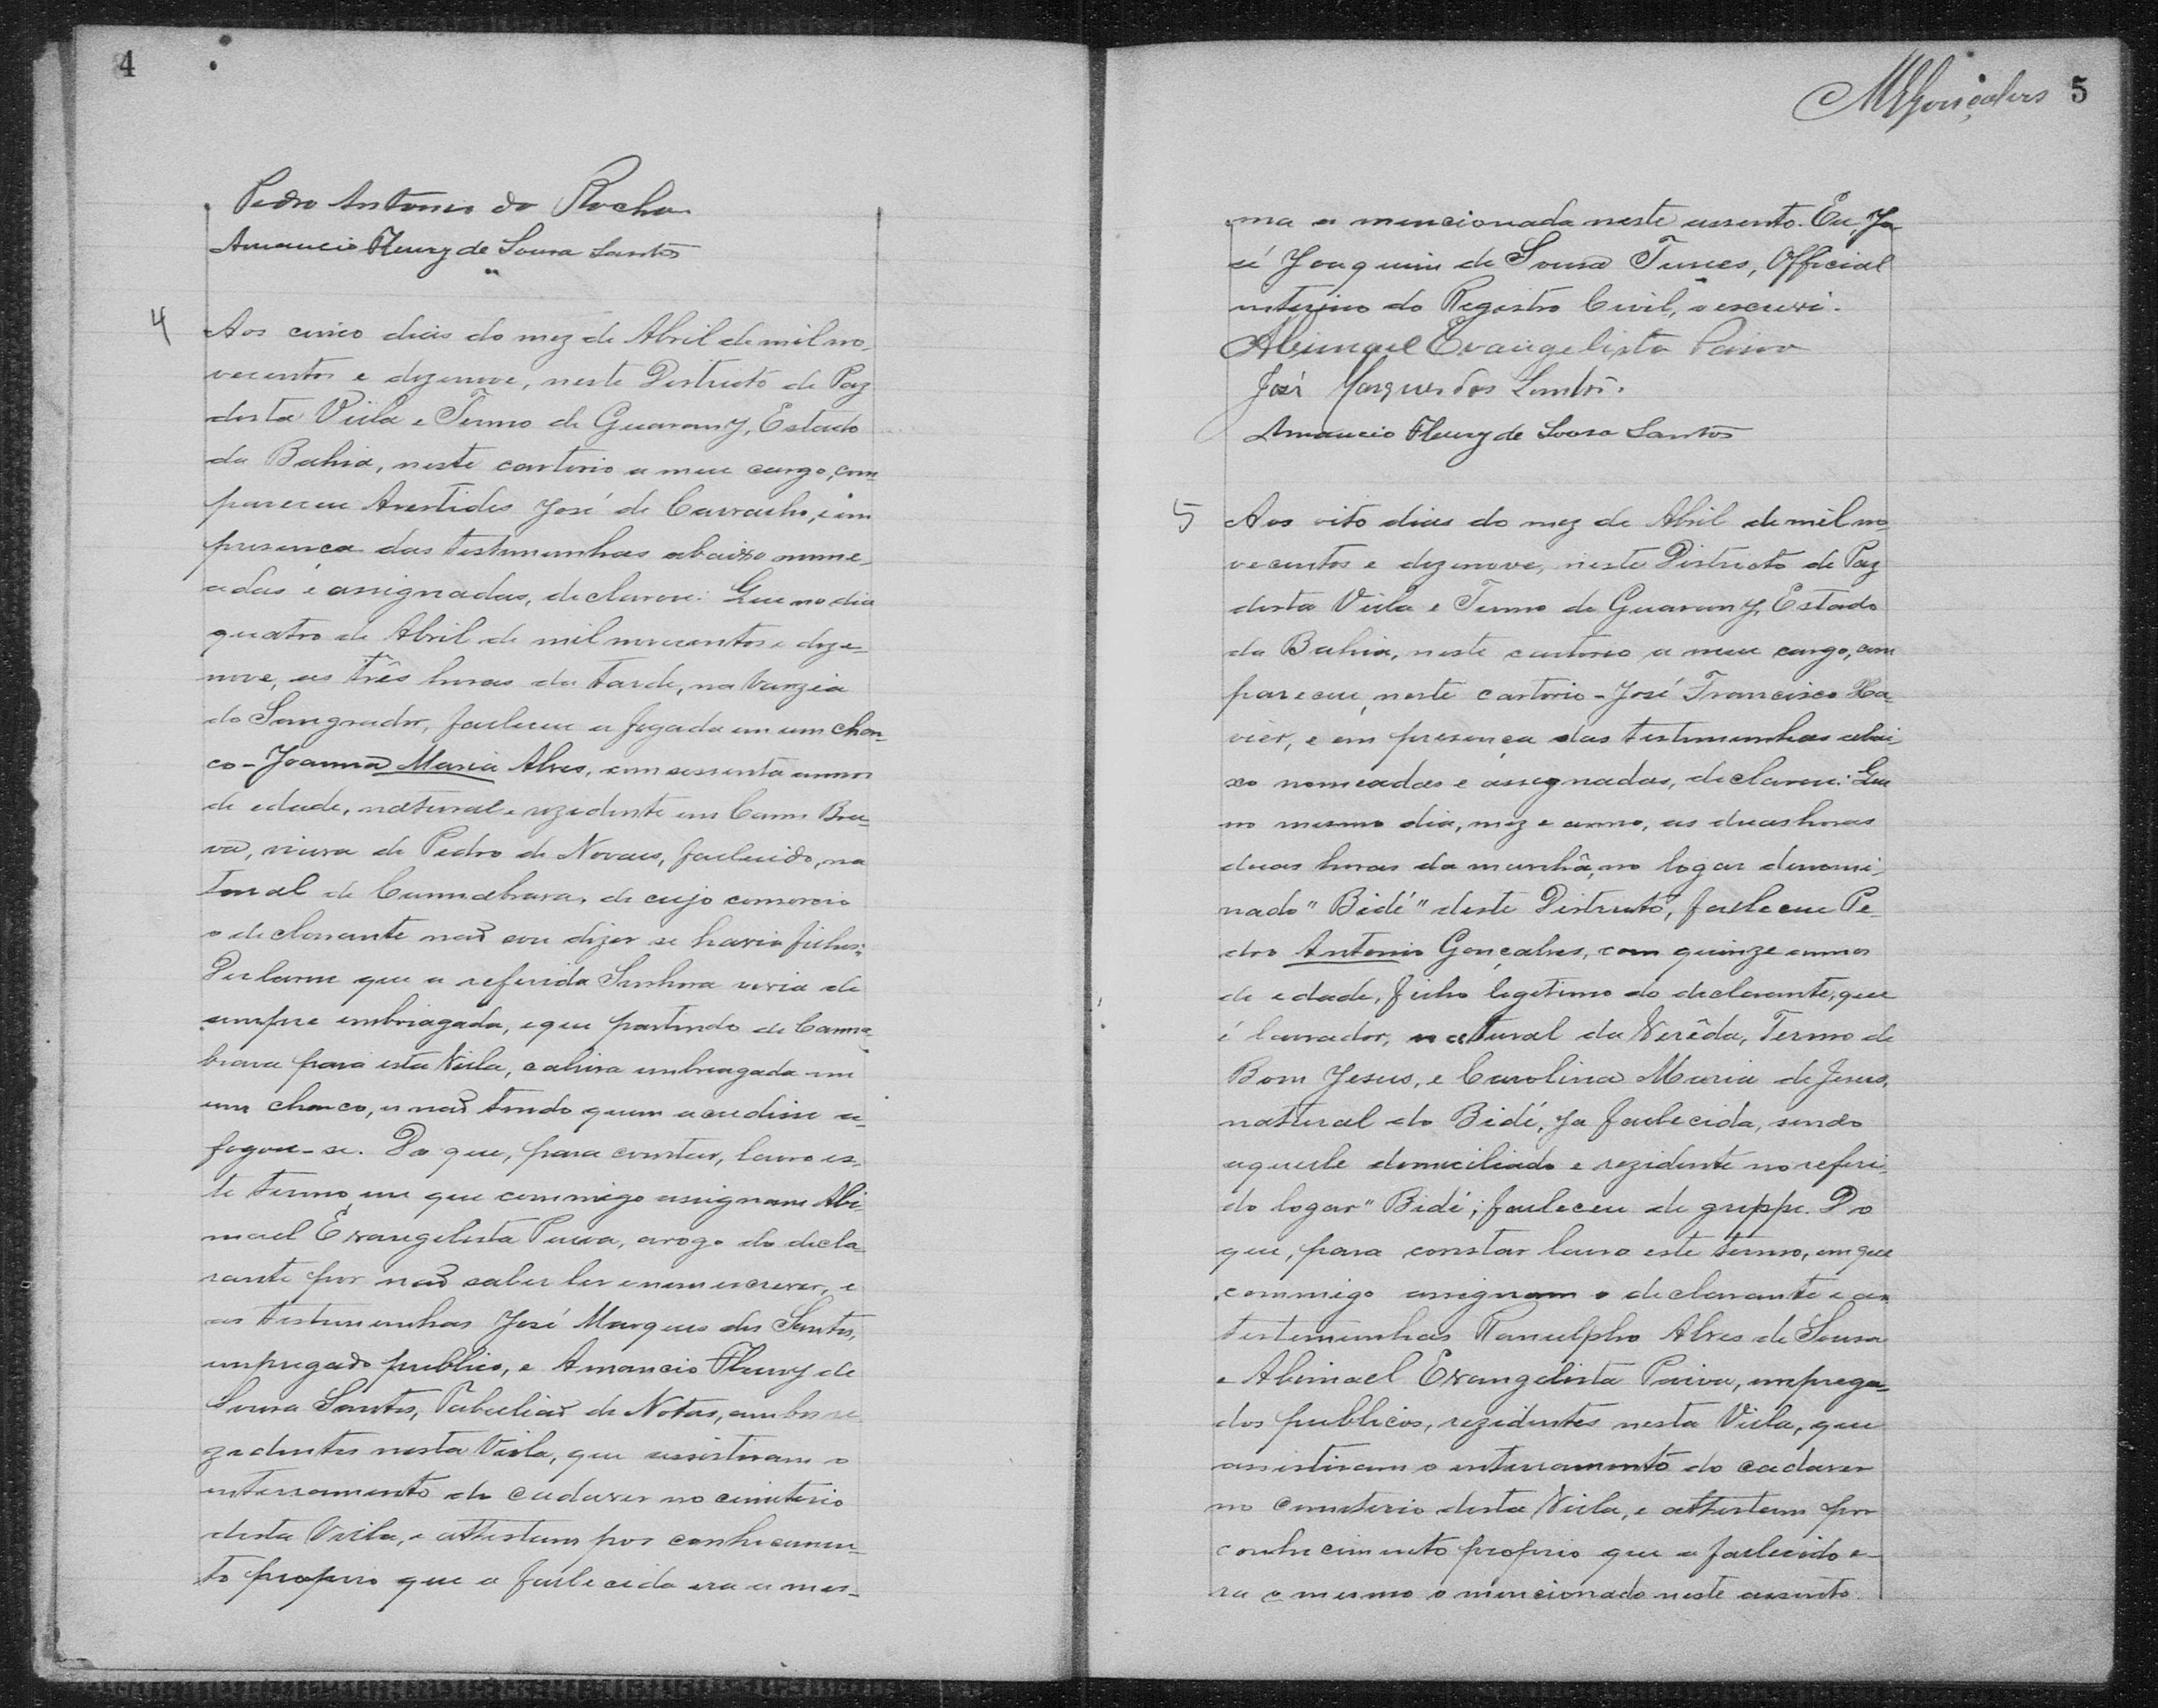 4
Pedro Antonio da Rocha
Amancio Fleury de Sousa Santos
4
Aos cinco dias do mez de Abril de mil no-
vecentos e dezenove, neste Districto de Paz
desta Villa e Termo de Guarany, Estado
da Bahia, neste cartorio a meu cargo, com-
pareceu Arestides José de Carvalho, e em
presença das testemunhas abaixo nome-
adas e assignadas, declarou: Que no dia
quatro de Abril de mil novecentos e deze-
nove, as três horas da tarde, na Varzea
do Sangrador, falleceu afogada em um chon-
co - Joanna Maria Alves, com sessenta annos
de edade, natural e rezidente em Canna Bra-
va, viuva de Pedro de Novaes, fallecido, na
tural de Cannabrava, de cujo consorcio
o declarante não sou dizer se havia filhos;
Declarou que a referida Senhora vivia de
sempre embriagada, e que partindo de Canna-
brava para esta Villa, cahira embreagada em
um chonco, e não tendo quem acudisse a-
fogou-se. Do que, para constar, lavro es-
te termo em que commigo assignam Abi-
mael Evangelista Paiva, arogo do decla-
rante por não saber ler e nem escrever, e
as testemunhas José Marques dos Santos,
empregado publico, e Amancio Fleury de
Sousa Santos, Tabellião de Notas, ambos re-
zidentes nesta Villa, que assistiram o
enterramento do cadaver no cimiterio
desta Villa, e attestam por conhecimen-
to proprio que a fallecida era a mes-
MSGonçalves 5
ma a mencionada neste assento. Eu, Jo-
sé Joaquim de Sousa Tunes, Official
interino do Registro Civil, o escrevi.
Abimael Evangelista Paiva
José Marques dos Santos.
Amancio Fleury de Sousa Santos
5
Aos oito dias do mez de Abril de mil no-
vecentos e dezenove, neste Districto de Paz
desta Villa e Termo de Guarany, Estado
da Bahia, neste cartorio a meu cargo, com
pareceu, neste cartorio - José Francisco Xa-
vier, e em presença das testemunhas abai-
xo nomeadas e assegnadas, declarou: Que
no mesmo dia, mez e anno, as duas horas
duas horas da manhã, no logar denomi-
nado "Bidé" deste Districto, falleceu Pe-
dro Antonio Gonçalves, com quinze annos
de edade, filho legitimo do declarante, que
é lavrador, natural da Verêda, Termo de
Bom Jesus, e Carolina Maria de Jesus,
natural do Bidé, ja fallecida, sendo
aquelle domiciliado e rezidente no referi-
do logar "Bidé; falleceu de grippe. Do
que, para constar lavro este termo, em que
commigo assignam o declarante e as
testemunhas Ranulpho Alves de Sousa
e Abimael Evangelista Paiva, emprega-
dos publicos, rezidentes nesta Villa, que
assistiram o enterramento do cadaver
no cemeterio desta Villa, e attestam por
conhecimento proprio que o fallecido e-
ra o mesmo o mencionado neste assento.